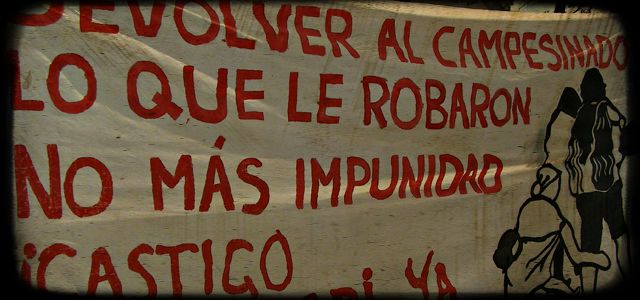 DEVOLVER AL CAMPESINADO
LO QUE LE ROBARON
NO MÁS IMPUNIDAD
¡CASTIGO
YA